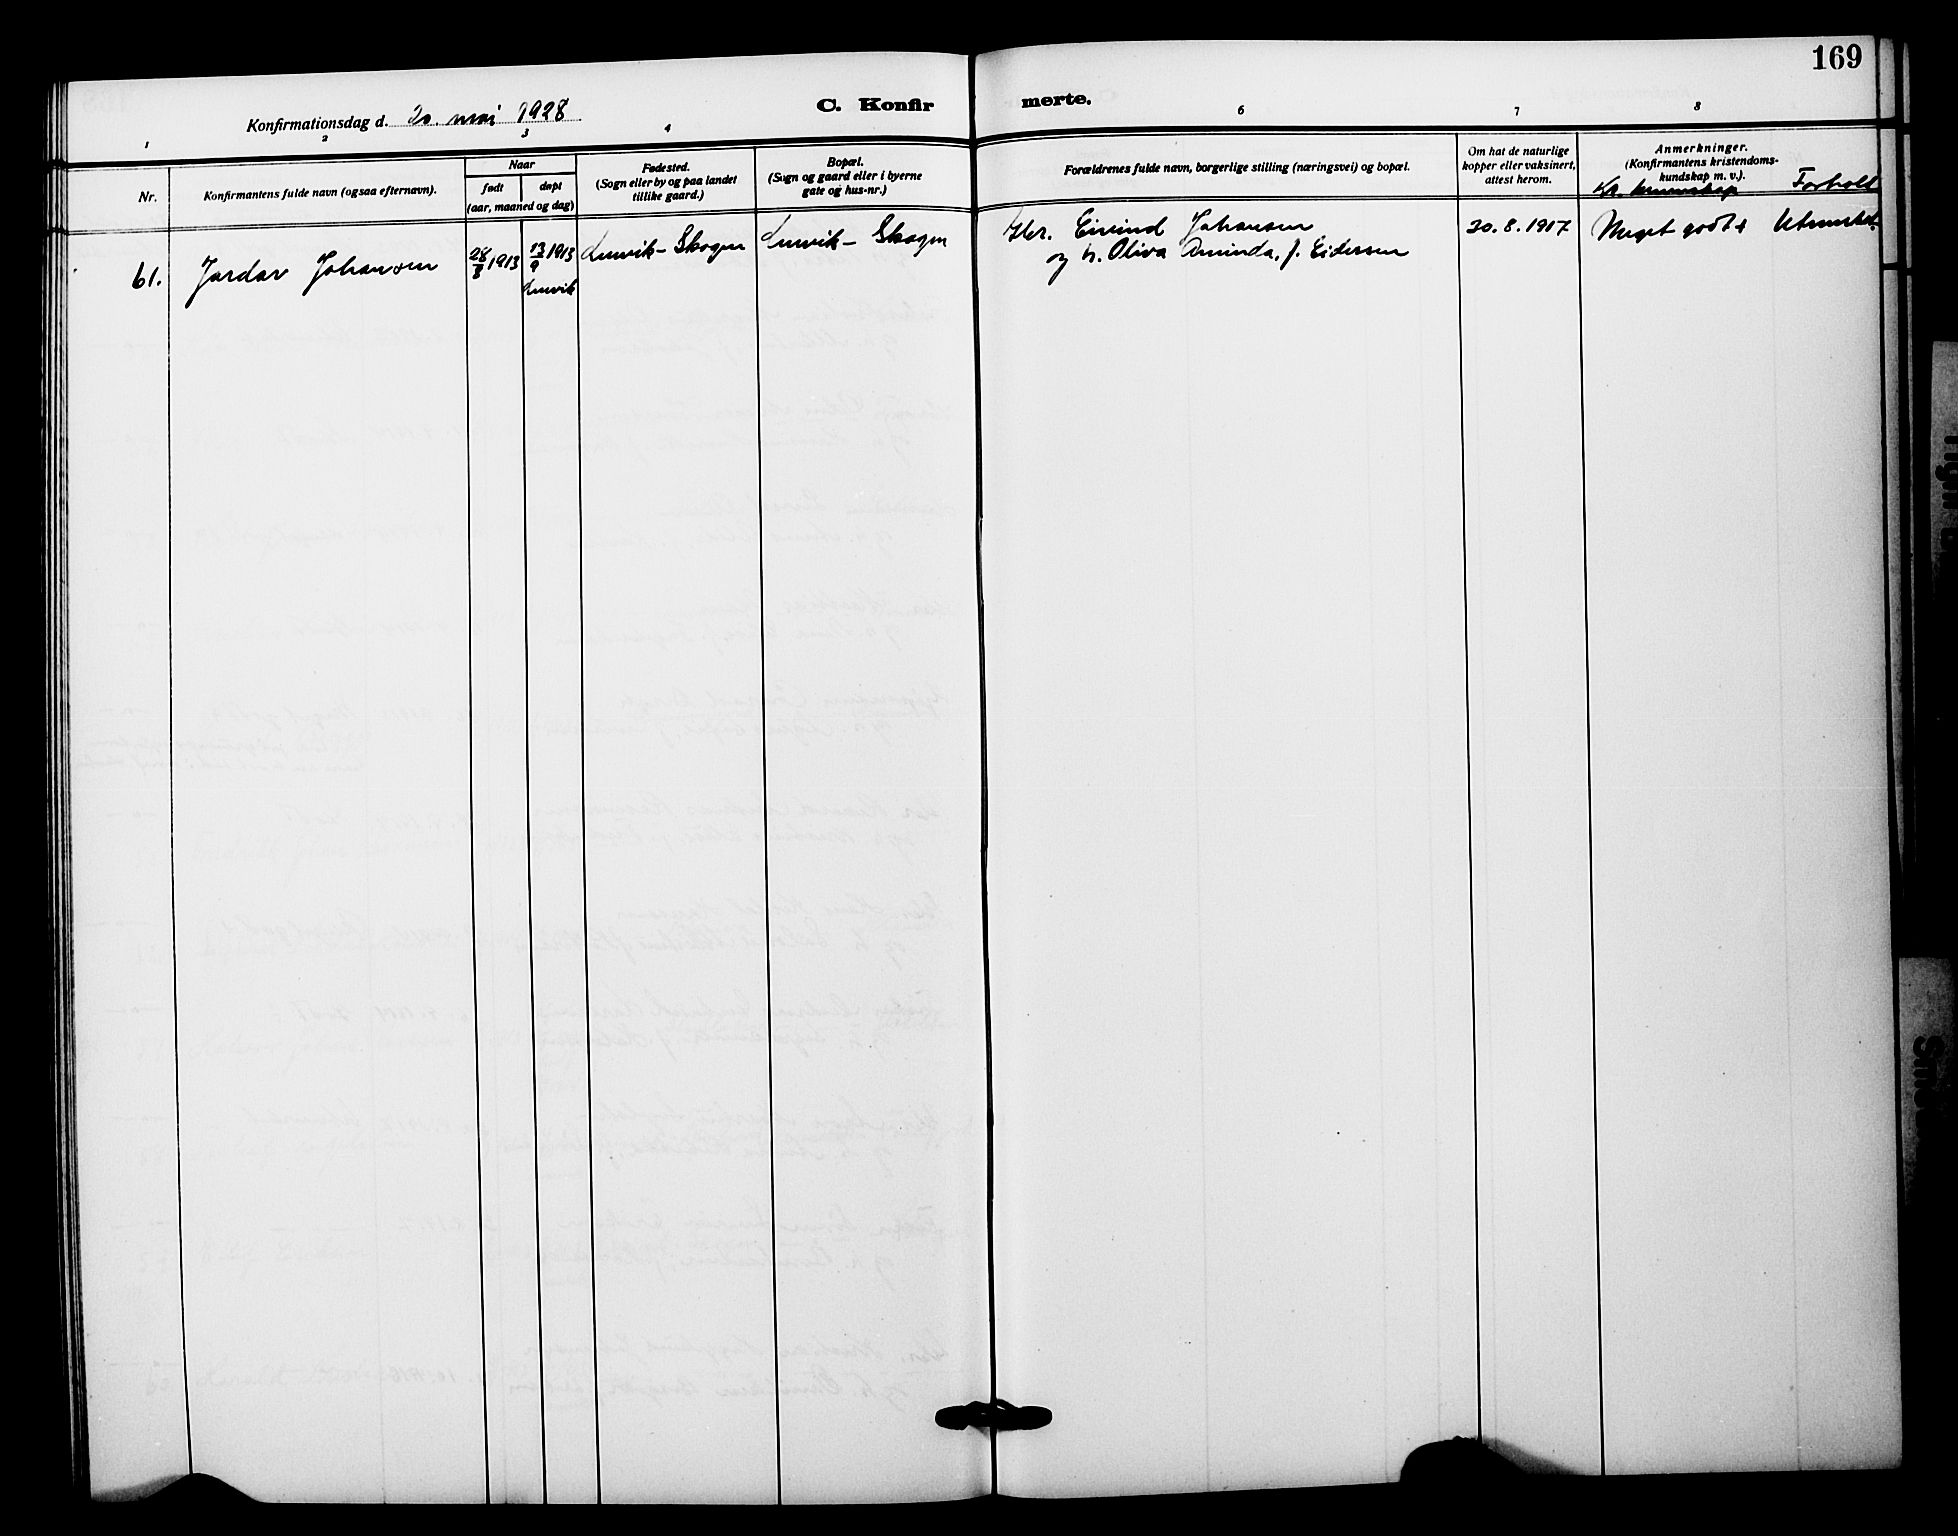 169
Konfirmationsdag d. 20. mai 1928
C. Konfir
merte.
1 2 3 4 6 7 8
Nr.
Konfirmantens fulde navn (ogsaa efternavn).
Naar
født døpt
(aar, maaned og dag)
Fødested.
(Sogn eller by og paa landet
tillike gaard.)
Bopæl.
(Sogn og gaard eller i byerne
gate og hus-nr.)
Forældrenes fulde navn, borgerlige stilling (næringsvei) og bopæl.
Om hat de naturlige
kopper eller vaksinert,
attest herom.
Anmerkninger.
(Konfirmantens kristendoms-
kundskap m. v.).
Kr. kunnskap Forhold
61. Jardar Johansen
28/8 1913
13/9 1913
Lenvik
Lenvik - Skogen
Lenvik - Skogen
Gbr. Eivind Johansen
og h. Oliva Aminda, f. Eidersen
30.8.1917
Meget godt + Utmerket